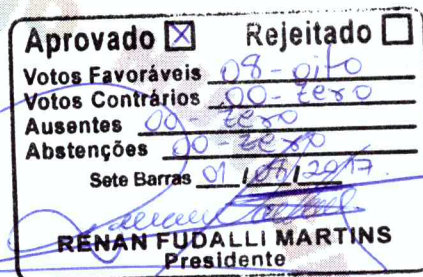 Aprovado ☒ Rejeitado ☐
Votos Favoráveis 08 - oito
Votos Contrários 00 - zero
Ausentes 00 - zero
Abstenções 00 - zero
Sete Barras 01 / / 2017
RENAN FUDALLI MARTINS
Presidente